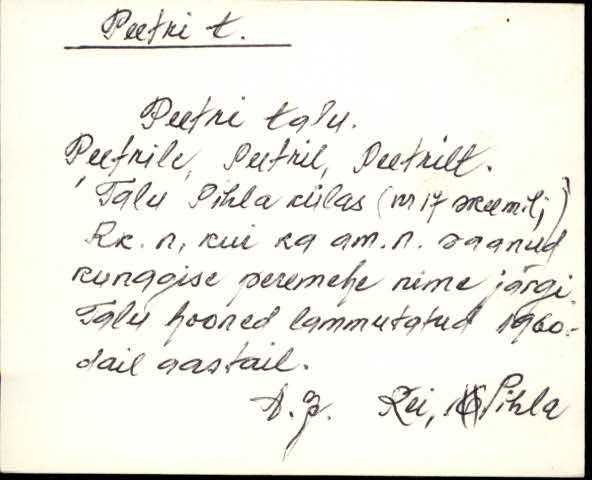 Peetri t.
Peetri talu.
Peetrile, Peetril, Peetrilt.
Talu Pihla külas (nr 17 skeemil;)
Rk. n, kui ka am. n. saanud
kunagise peremehe nime järgi.
Talu hooned lammutatud 1960-
dail aastail.
Rei, Pihla